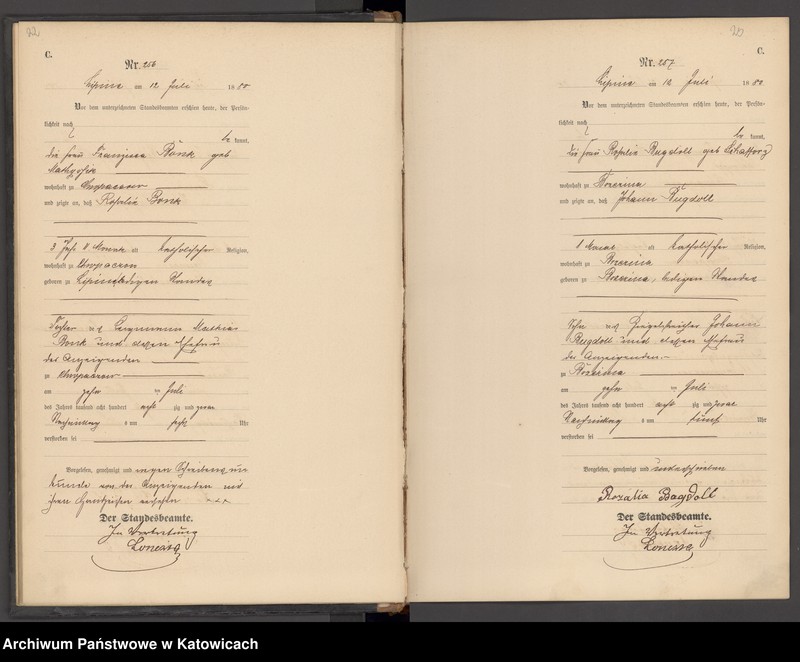 22
C.
Nr. 256
Lipine am 12 Juli 1880
Vor dem unterzeichneten Standesbeamten erschien heute, der Persön-
lichkeit nach
be kannt,
die Frau Bonk geb
wohnhaft zu Chropaczow
und zeigte an, daß Rosalie Bonk
3 Jahr alt katholischer Religion,
wohnhaft zu Chropaczow
geboren zu Lipine ledigen Standes
Tochter des Mathias
Bonk und dessen Ehefrau
der Anzeigenden
zu Chropaczow
am zehn ten Juli
des Jahres tausend acht hundert acht zig und
Nachmittag s um Uhr
verstorben sei
Vorgelesen, genehmigt und wegen
von der Anzeigenden mit
ihren Handzeichen versehn +++
Der Standesbeamte.
In Vertretung
20
C.
Nr. 257
Lipine am 12 Juli 1880
Vor dem unterzeichneten Standesbeamten erschien heute, der Persön-
lichkeit nach
be kannt,
die Frau Rosalie Bugdoll geb
wohnhaft zu Brzezina
und zeigte an, daß Johann Bugdoll
1 Monat alt katholischer Religion,
wohnhaft zu Brzezina
geboren zu Brzezina, ledigen Standes
Sohn des Johann
Bugdoll und dessen Ehefrau
der Anzeigenden
zu Brzezina
am zehn ten Juli
des Jahres tausend acht hundert acht zig und
Nachmittag s um fünf Uhr
verstorben sei
Vorgelesen, genehmigt und unterschrieben
Rozalia Bagdoll
Der Standesbeamte.
In Vertretung
Archiwum Państwowe w Katowicach